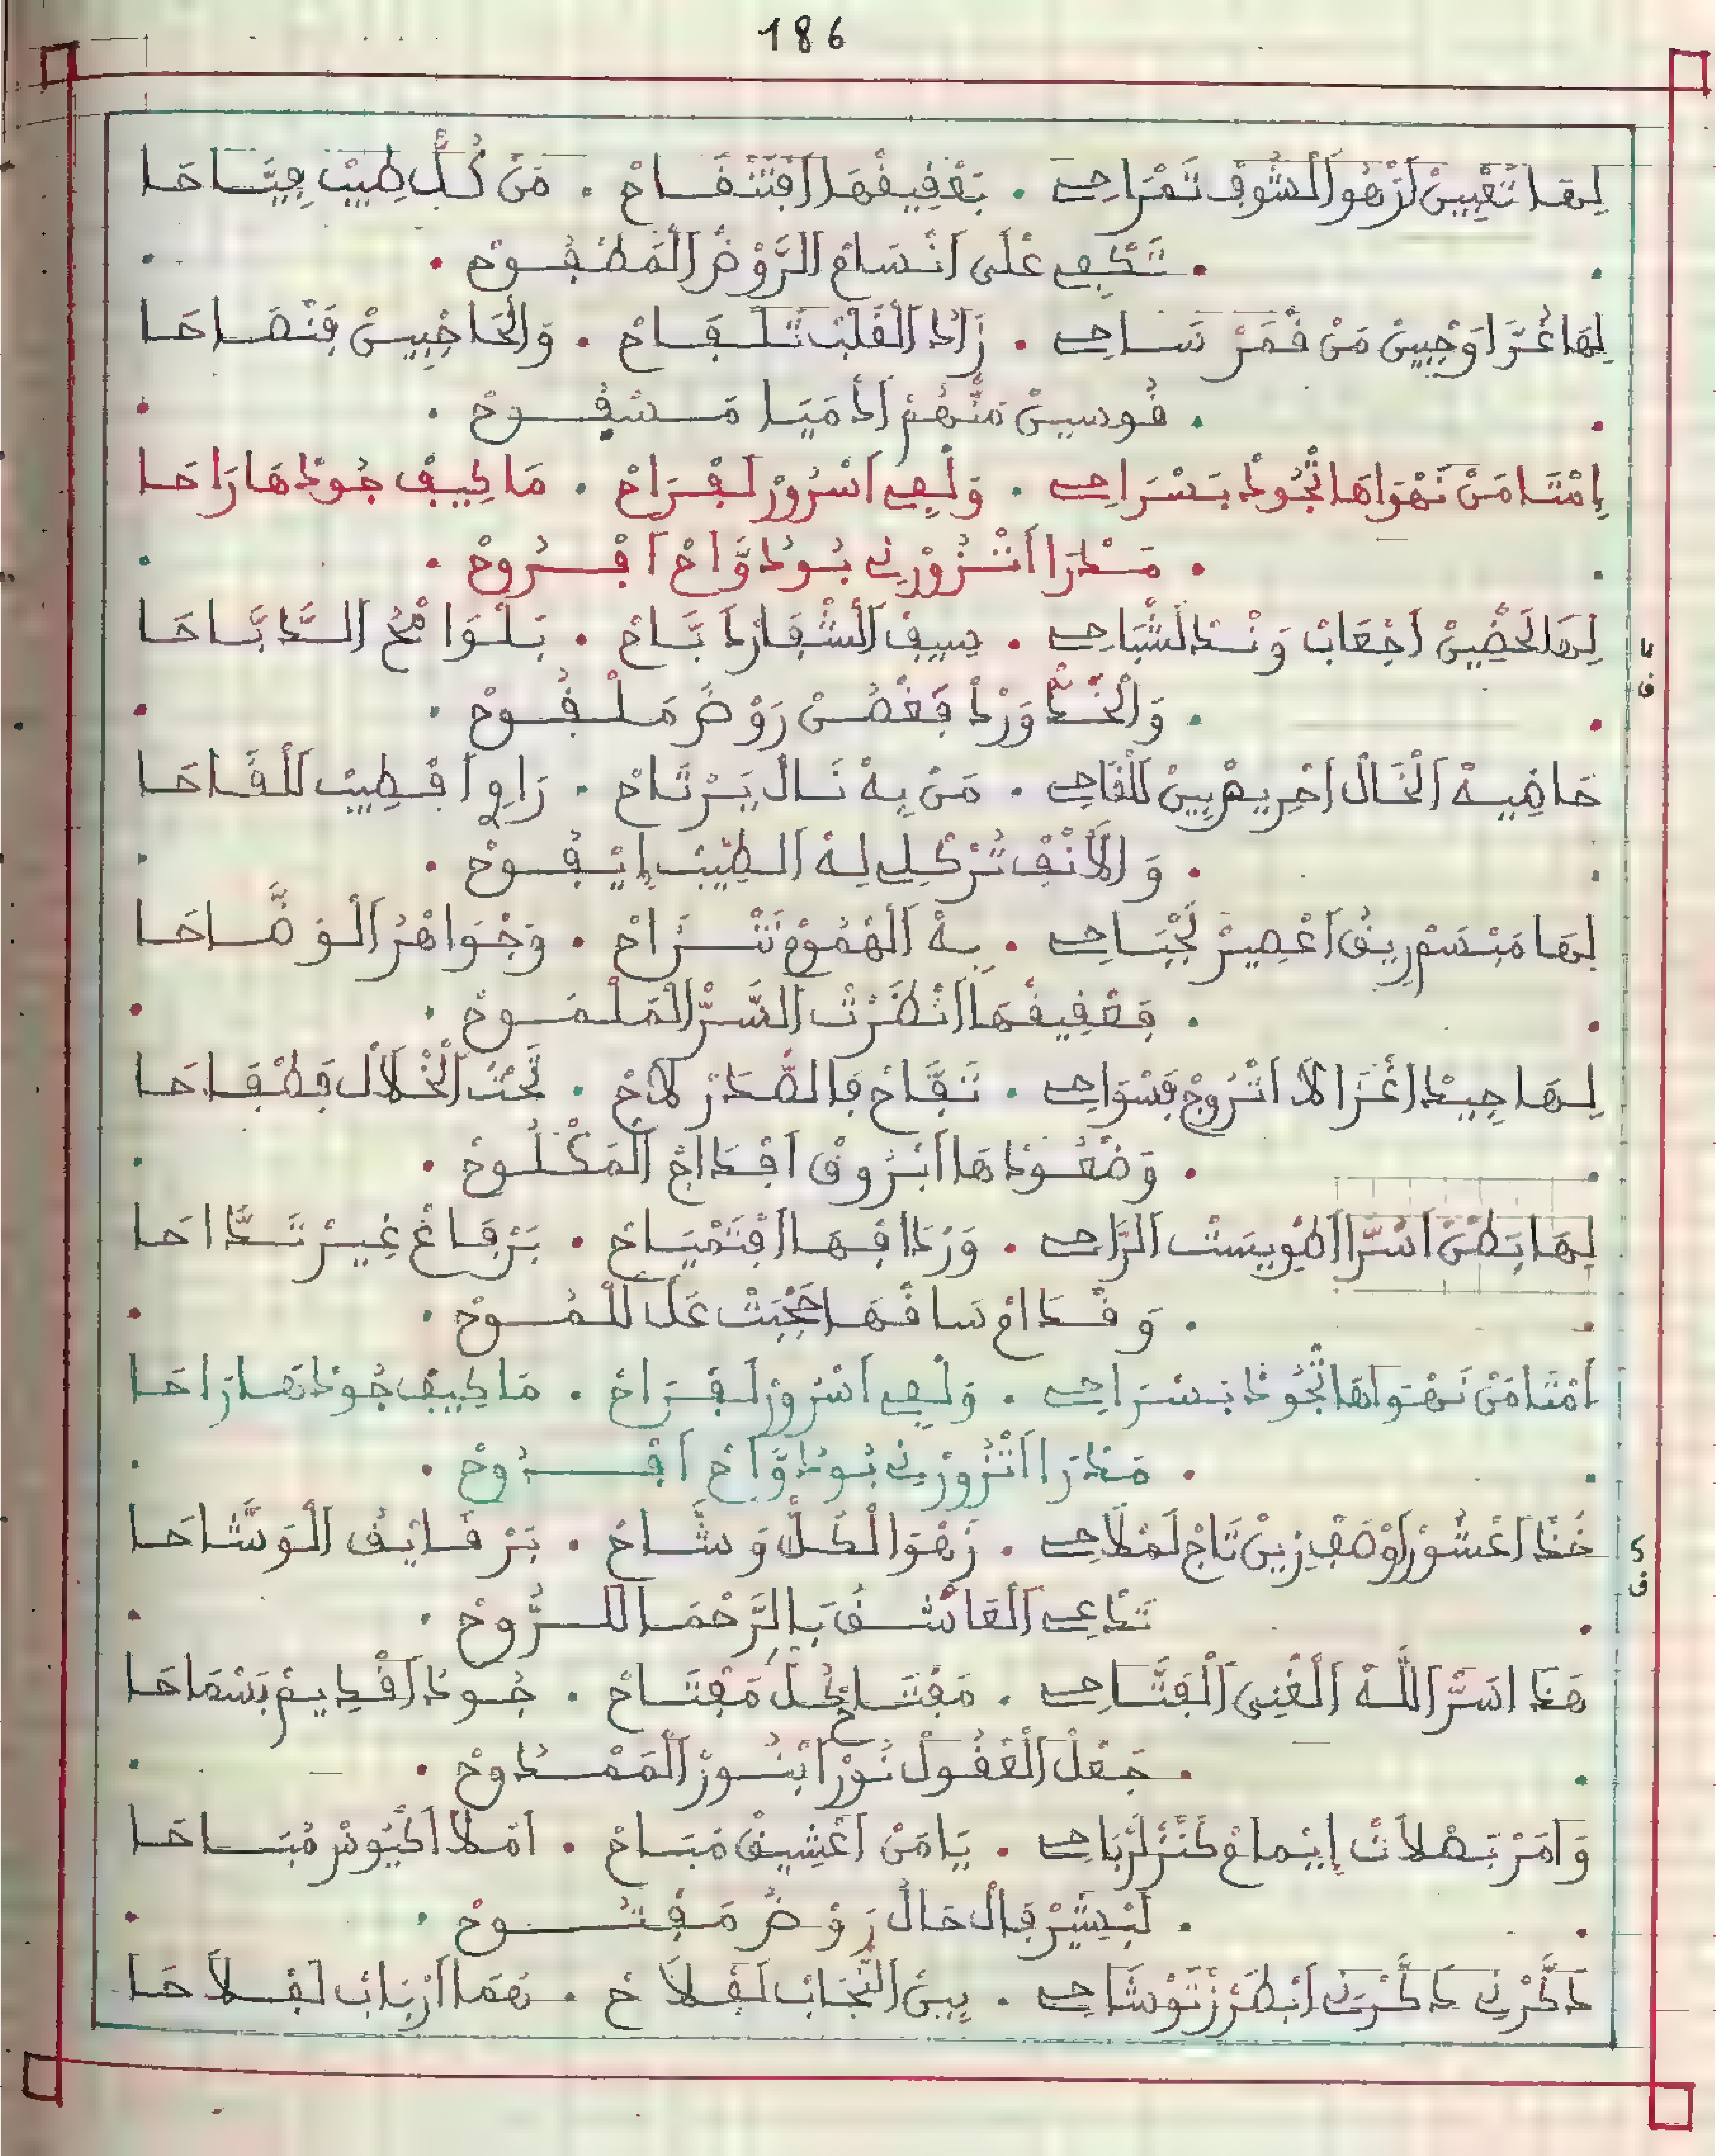 186
لِهَا تَعْيِينْ لَزْهُو الشُّوفْ تَمْرَاحِي . بَعْقِيقْهَا اقْتَنْفَاحْ . مَنْ كُلّْ طِيبْ فِيَّاحَا
. تَكْفِي عْلَى انْسَامْ الرَّوْضْ الْمَطْفُوحْ .
لِهَا غُرَّا وَجْبِينْ مَنْ قْمَرْ سَاحِي . زَادْ الْقَلْبْ تَلْفَاحْ . وَالْحَاجْبِينْ فَنْصَاحَا
. قُوسِينْ مَنْهُمْ ادْمَيَا مَسْفُوحْ .
إِمْتَا مَنْ نَهْوَاهَا تْجُودْ بَسْرَاحِي . وَلْفِي اسْرُورْ لَفْرَاحْ . مَا كِيفْ جُودْهَا رَاحَا
. مَدْرَا اتْزُورْنِي بُودْوَّاحْ افْرُوحْ .
لِهَا لَحْضِينْ اجْعَابْ وَنْدْ لَشْبَاحِي . سِيفْ الشْفَارْ دَبَّاحْ . بَلْوَامْحْ الدَّبَّاحَا
ف 4
. وَالْخَدّْ وَرْدْ فَغْصُنْ رَوْضْ مَلْقُوحْ .
خَاضِيهْ الْخَالْ احْرِيمْ بِينْ لَلْقَاحِي . مَنْ بِهْ نَالْ يَرْتَاحْ . رَاوِي افْطِيبْ لَلْقَاحَا
. وَالَانْفْ تُرْكْلِي لِهْ الطِّيبْ إيْفُوحْ .
لِهَا مَبْسَمْ رِيقْ اعْصِيرْ لَجْبَاحِي . بِهْ الْهْمُومْ تَنْزَاحْ . وَجْوَاهْرْ الْوَضَّاحَا
. فَعْقِيقْهَا انْظَرْتْ السَّرّْ الْمَلْمُوحْ .
لِهَا جِيدْ اغْزَالَا اتْرُوجْ فَسْوَاحِي . تَفَّاحْ فَالصْدَرْ لَاحْ . تَحْتْ الْخْلَالْ فَطْفَاحَا
. وَضْعُودْهَا ابْرُوقْ افْدَاجْ الْمَكْلُوحْ .
لِهَا بَطْنْ اسْرَّا اطْوِيسَتْ الرَّاحِي . وَرْدَافْهَا اقْتَمْيَاحْ . بَرْفَاغْ غِيرْ تَدَّاحَا
. وَقْدَامْ سَاقْهَا حَجْبَتْ عَلَى لَلْمُوحْ .
امْتَا مَنْ نَهْوَاهَا تْجُودْ بَسْرَاحِي . وَلْفِي اسْرُورْ لَفْرَاحْ . مَا كِيفْ جُودْهَا رَاحَا
. مَدْرَا اتْزُورْنِي بُودْوَّاحْ افْرُوحْ .
خُدْ اعْشُورْ اوْصَفْ زِينْ تَاجْ لَمْلَاحِي . زَهْوَ الْكَلّْ وَشَّاحْ . بَرْقَايْقْ الْوَشَّاحَا
ف 5
تَدْعِي الْعَاشْقْ بَالرَّحْمَا لَلرُّوحْ .
هَدَا اسَرّْ اللَّهْ الْغْنِي الْفَتَّاحِي . مَفْتَاحْ كُلّْ مَفْتَاحْ . جُودْ اقْدِيمْ بَسْمَاحَا
. جَعْلْ الْعْقُولْ نُورْ ابْنُورْ الْمَمْدُوحْ .
وَامَرْ بَصْلَاتْ إيْمَامْ كَنْزْ لَرْبَاحِي . يَا مَنْ اعْشِيقْ مَبَاحْ . امْلَا اكْيُوسْ مْبَاحَا
. لَبْشِيرْ فَالْحَالْ رَوْضْ مَفْتُوحْ .
دَكَّرْنِي دَكَّرْنِي ابْطَرْزْ تَوْشَاحِي . بِينْ النْجَابْ لَفْلَاحْ . هَمَا ارْبَابْ لَفْلَاحَا